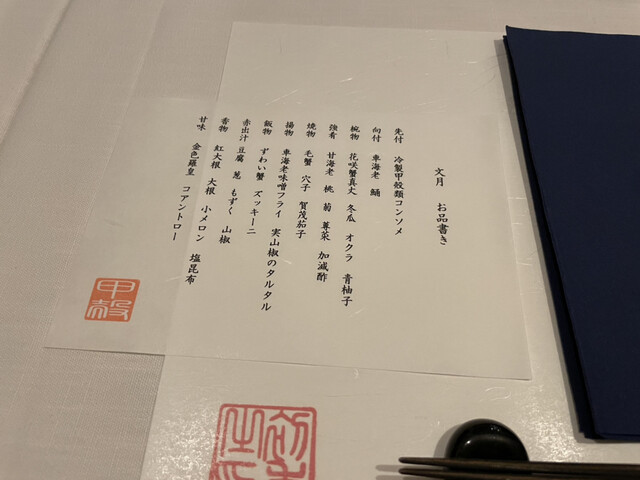 文月　お品書き
先付　冷製甲殻類コンソメ
向付　車海老　鮪
椀物　花咲蟹真丈　冬瓜　オクラ　青柚子
強肴　甘海老　桃　菊　蓴菜　加減酢
焼物　毛蟹　穴子　賀茂茄子
揚物　車海老味噌フライ　実山椒のタルタル
飯物　ずわい蟹　ズッキーニ
赤出汁　豆腐　葱　もずく　山椒
香物　紅大根　大根　小メロン　塩昆布
甘味　金色羅皇　コアントロー
甲殻